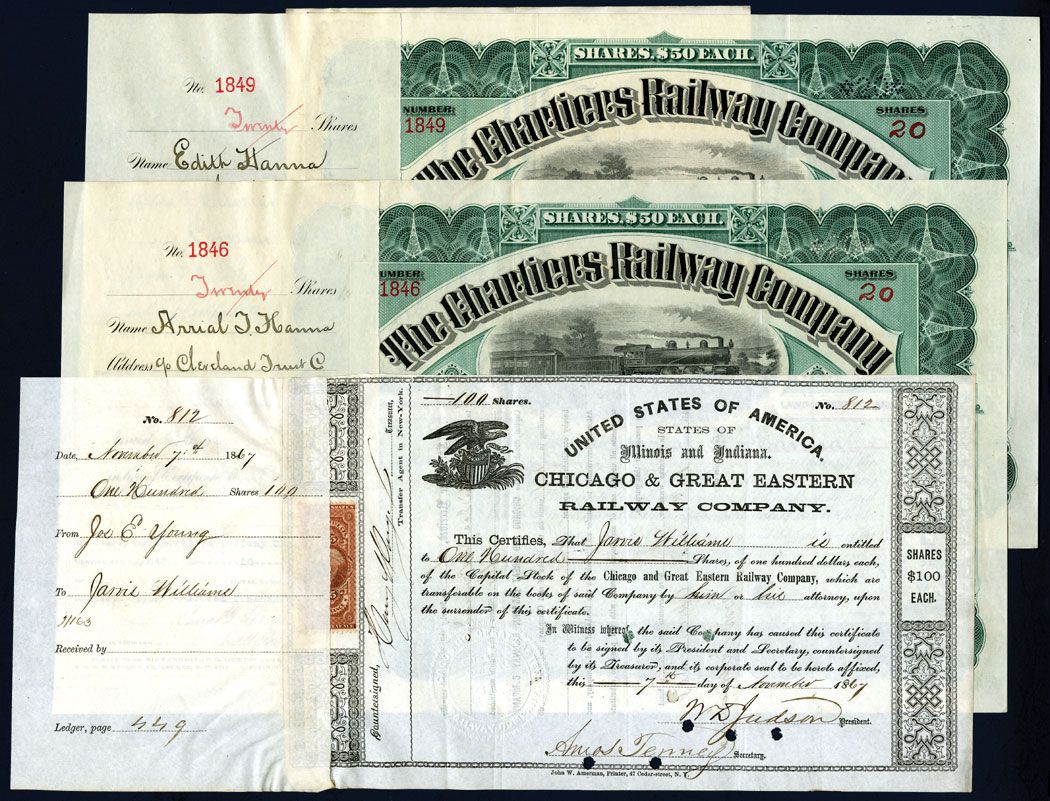 No. 1849
Twenty Shares
Name Edith Hanna
SHARES, $50 EACH.
NUMBER
1849
SHARES
20
The Chartiers Railway Company
No. 1846
Twenty Shares
Name Arrial T Hanna
Address c/o Cleveland Trust C
SHARES, $50 EACH.
NUMBER
1846
SHARES
20
The Chartiers Railway Company
No. 812
Date, November 7th 1867
One Hundred Shares 100
From Joe E Young
To Jarvis Williams
Received by
Ledger, page 449
Countersigned,
Transfer Agent in New-York.
Treasurer,
100 Shares.
No. 812
UNITED STATES OF AMERICA.
STATES OF
Illinois and Indiana.
CHICAGO & GREAT EASTERN
RAILWAY COMPANY.
This Certifies, That Jarvis Williams is entitled
to One Hundred Shares, of one hundred dollars each,
of the Capital Stock of the Chicago and Great Eastern Railway Company, which are
transferable on the books of said Company by him or his attorney, upon
the surrender of this certificate.
In Witness whereof the said Company has caused this certificate
to be signed by its President and Secretary, countersigned
by its Treasurer, and its corporate seal to be hereto affixed,
this 7th day of November 1867
W D Judson President.
Amos Tenney Secretary.
SHARES
$100
EACH.
John W. Amerman, Printer, 47 Cedar-street, N. Y.